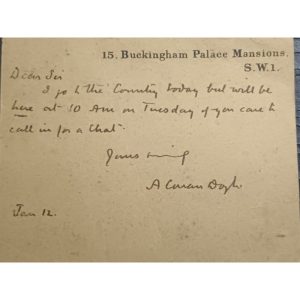 15. Buckingham Palace Mansions.
S.W.1.
Dear Sir
I go to the Country today but will be
here at 10 Am on Tuesday if you care to
call in for a chat.
Yours
A Conan Doyle
Jan 12.